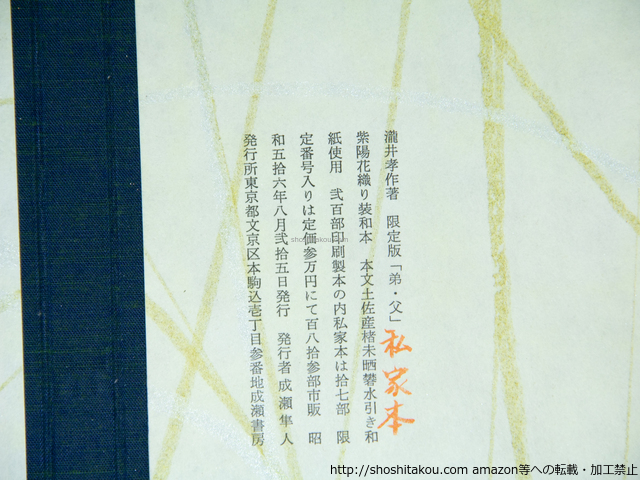 瀧井孝作著　限定版「弟・父」
私家本
紫陽花織り装和本　本文土佐産楮未晒礬水引き和
紙使用　弐百部印刷製本の内私家本は拾七部　限
定番号入りは定価参万円にて百八拾参部市販　昭
和五拾六年八月弐拾五日発行　発行者成瀬隼人
発行所東京都文京区本駒込壱丁目参番地成瀬書房
shoshitakou.com
http://shoshitakou.com amazon等への転載・加工禁止